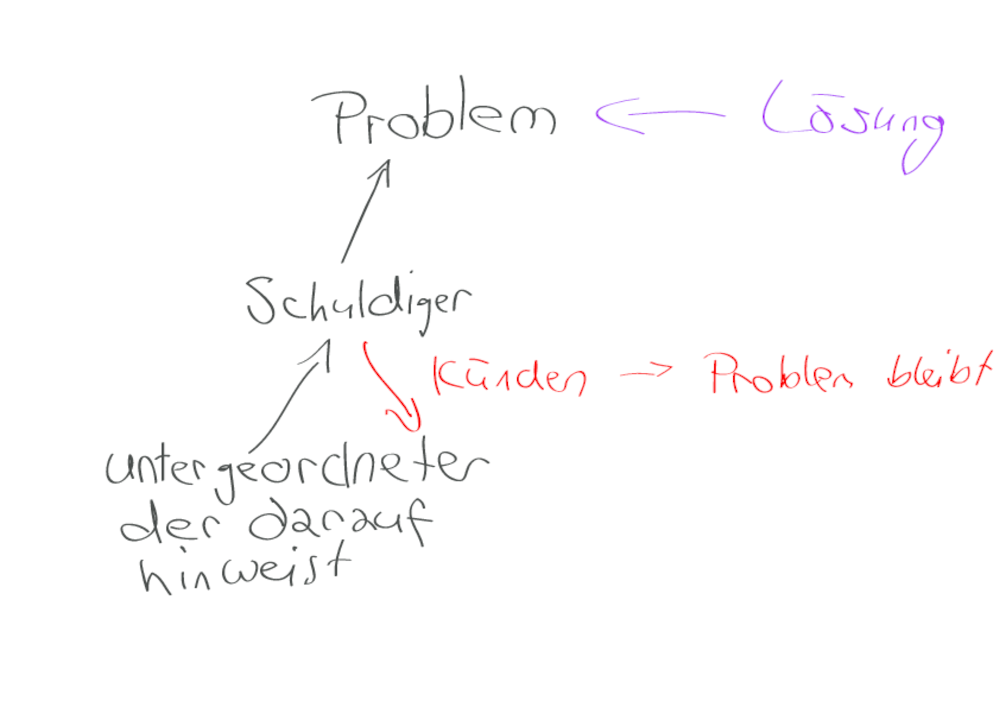 Problem ← Lösung
Schuldiger
Künden → Problem bleibt
untergeordneter
der darauf
hinweist